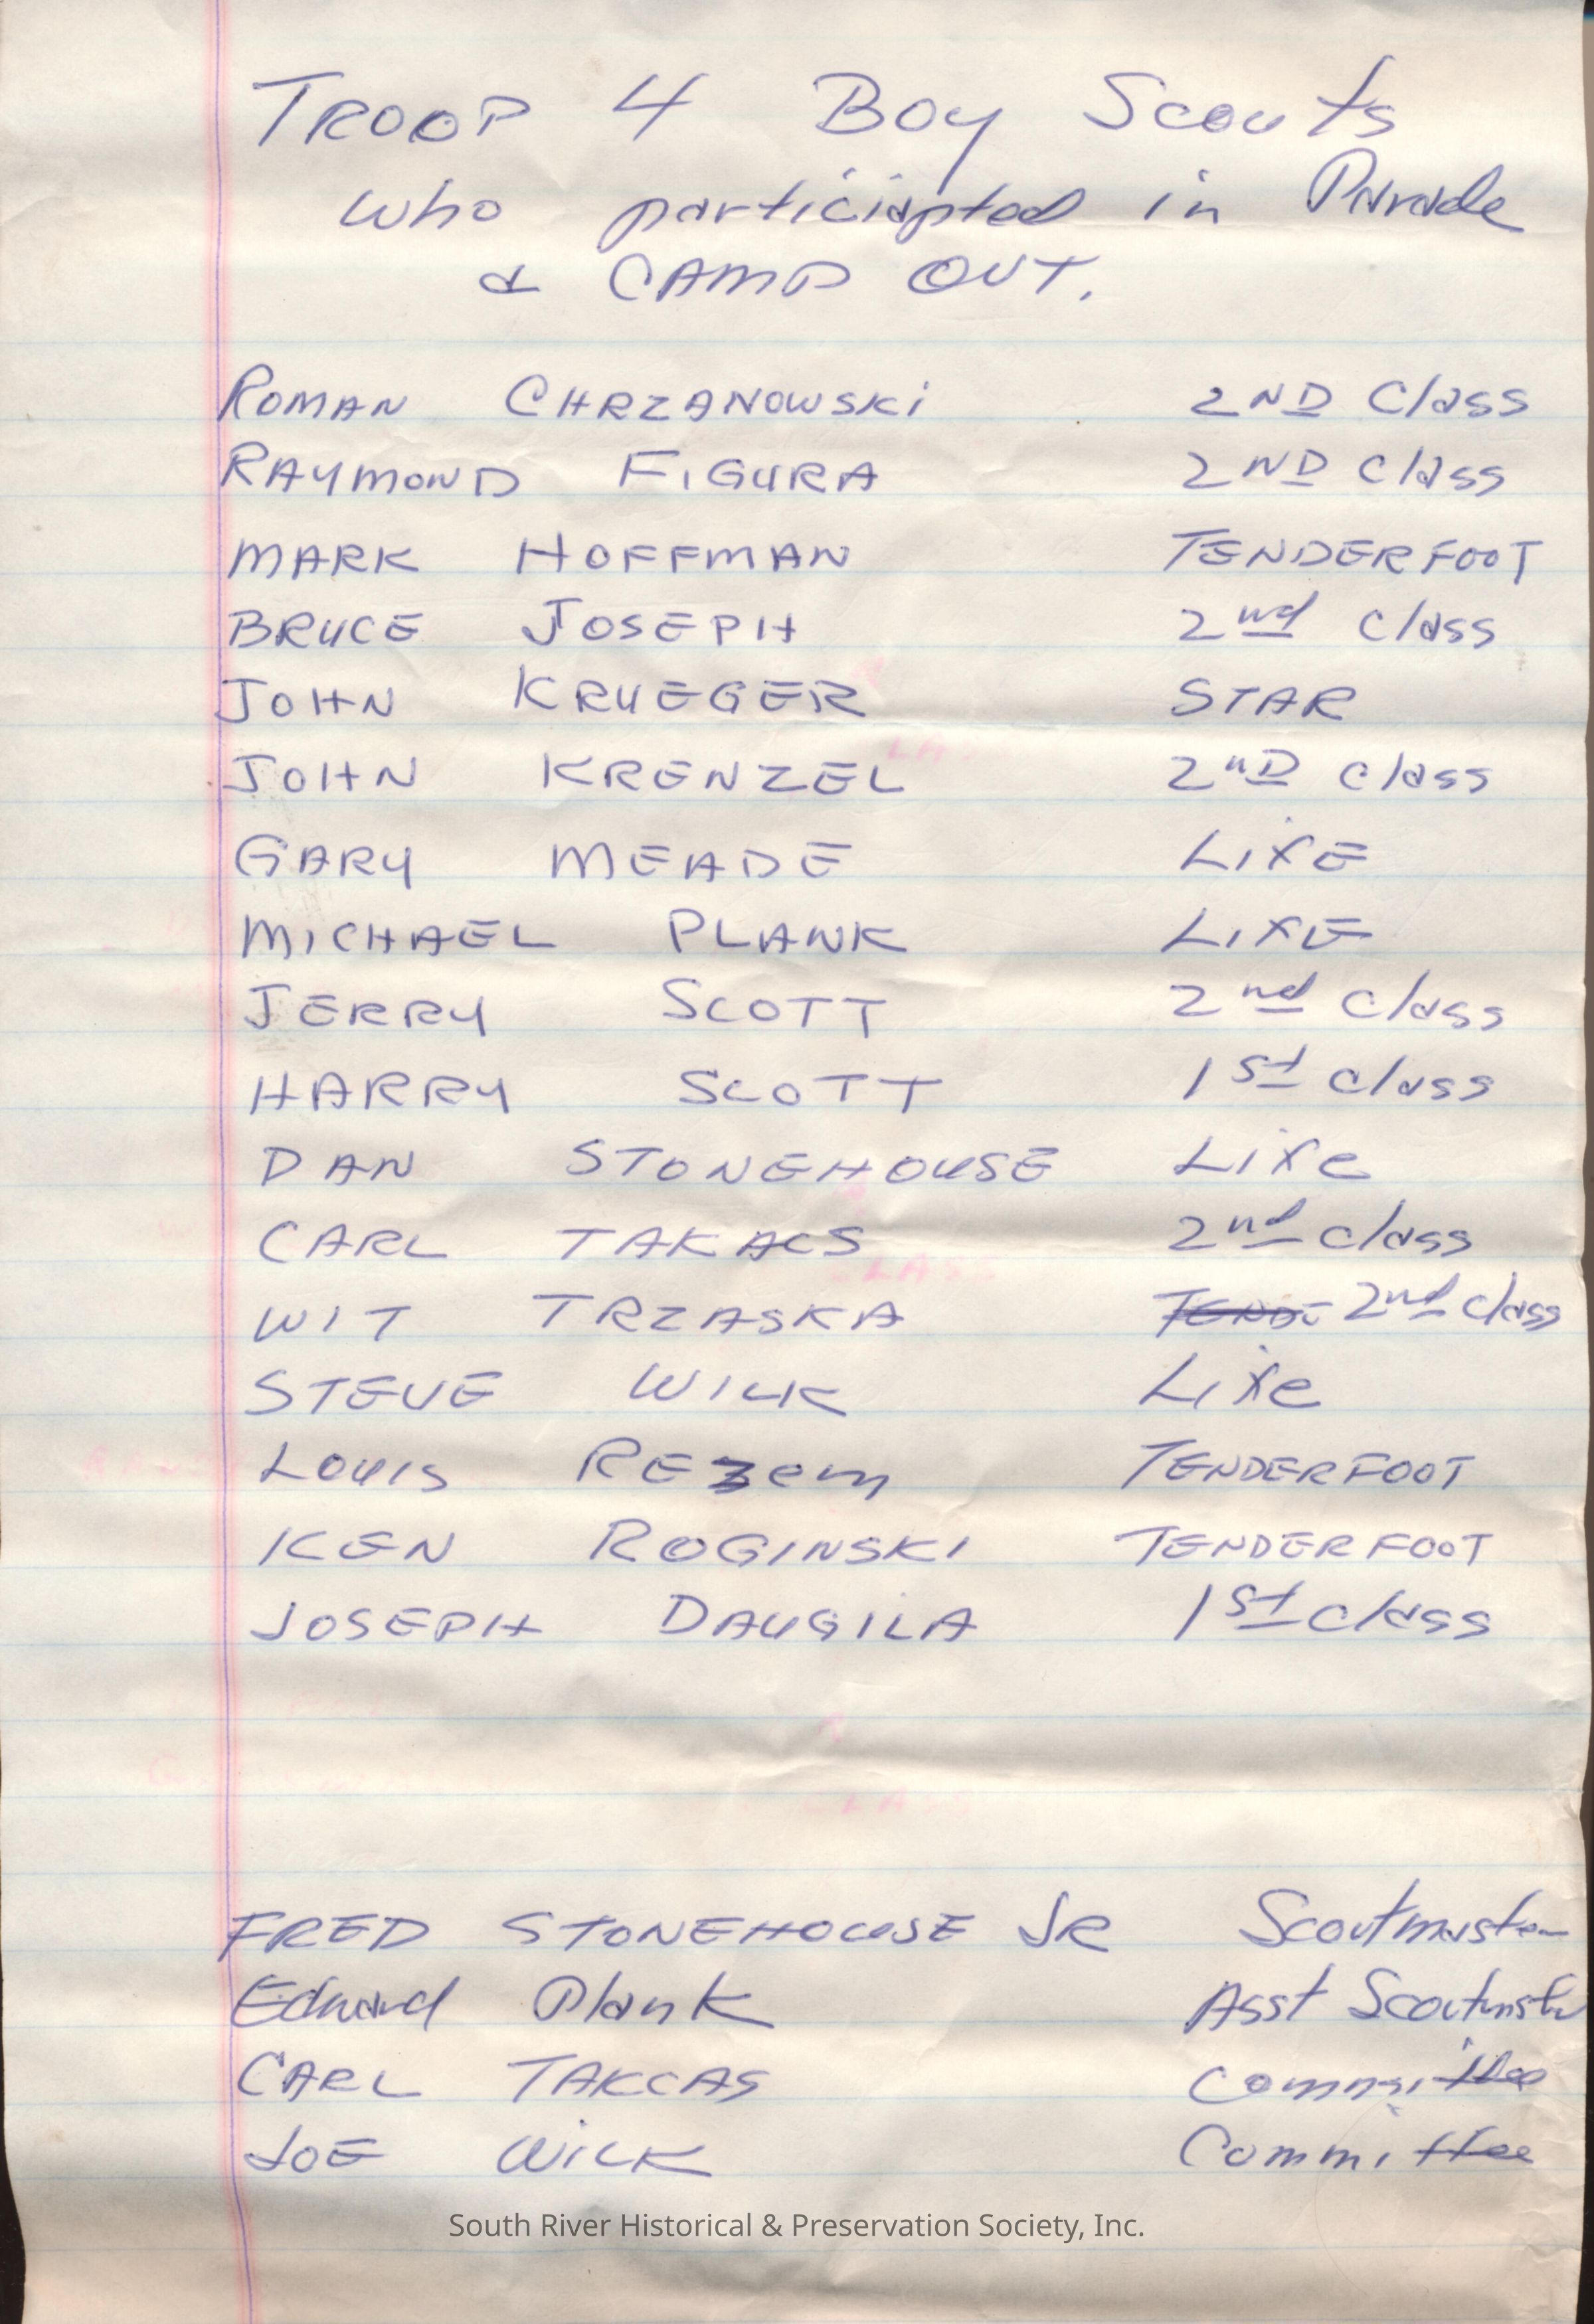 TROOP 4 Boy Scouts
who particiapted in Parade
& CAMP OUT.
ROMAN CHRZANOWSKi 2ND Class
RAYMOND FIGURA 2ND Class
MARK HOFFMAN TENDERFOOT
BRUCE JOSEPH 2nd Class
JOHN KRUEGER STAR
JOHN KRENZEL 2nD class
GARY MEADE LifE
MICHAEL PLANK LifE
JERRY SCOTT 2nd Class
HARRY SCOTT 1st class
DAN STONEHOUSE Life
CARL TAKACS 2nd class
WIT TRZASKA TENDE 2nd class
STEVE WILK Life
LOUIS REzem TENDERFOOT
KEN ROGINSKI TENDERFOOT
JOSEPH DAUGILA 1st class
FRED STONEHOUSE JR Scoutmaster
Edward Plank Asst Scoutmstr
CARL TAKCAS Committee
JOE WILK Committee
South River Historical & Preservation Society, Inc.